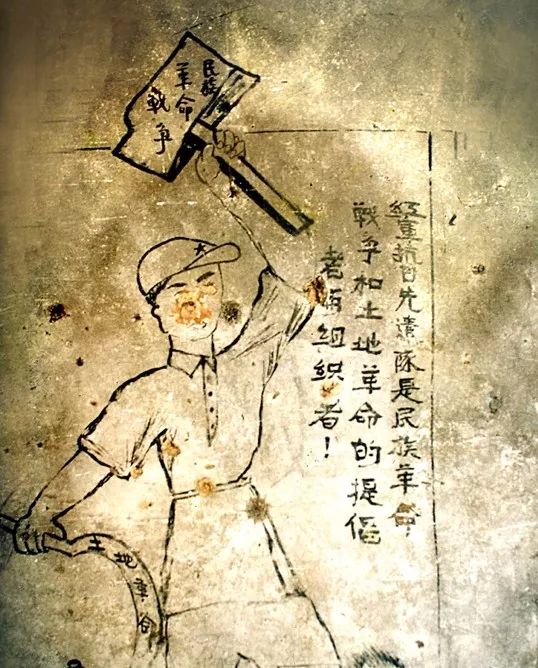 民族
革命
戰争
紅軍抗日先遣隊是民族革命
戰争和土地革命的提倡
者與組織者!
土地革命